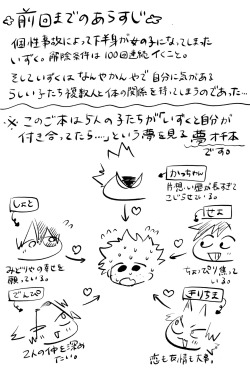 前回までのあらすじ
個性事故によって下半身が女の子になってしまった
いずく。解除条件は100回連続イくこと。
そしていずくはなんやかんやで自分に気がある
らしい子たち複数人と体の関係を持ってしまうのであった…
※このご本は5人の子たちが「いずくと自分が
付き合ってたら…」という夢を見る夢オチ本
です。
かっちゃん
片想い歴が長すぎて
こじらせている。
しょと
みどりやの幸せを
願っている。
せろ
ちょっぴり焦って
いる。
でんき
2人の仲を深め
たい。
きりしま
恋も友情も大事。